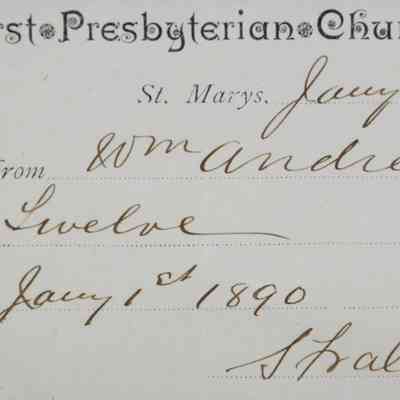 rst Presbyterian Chu
St. Marys. Jany
from Wm Andre
Twelve
Jany 1st 1890